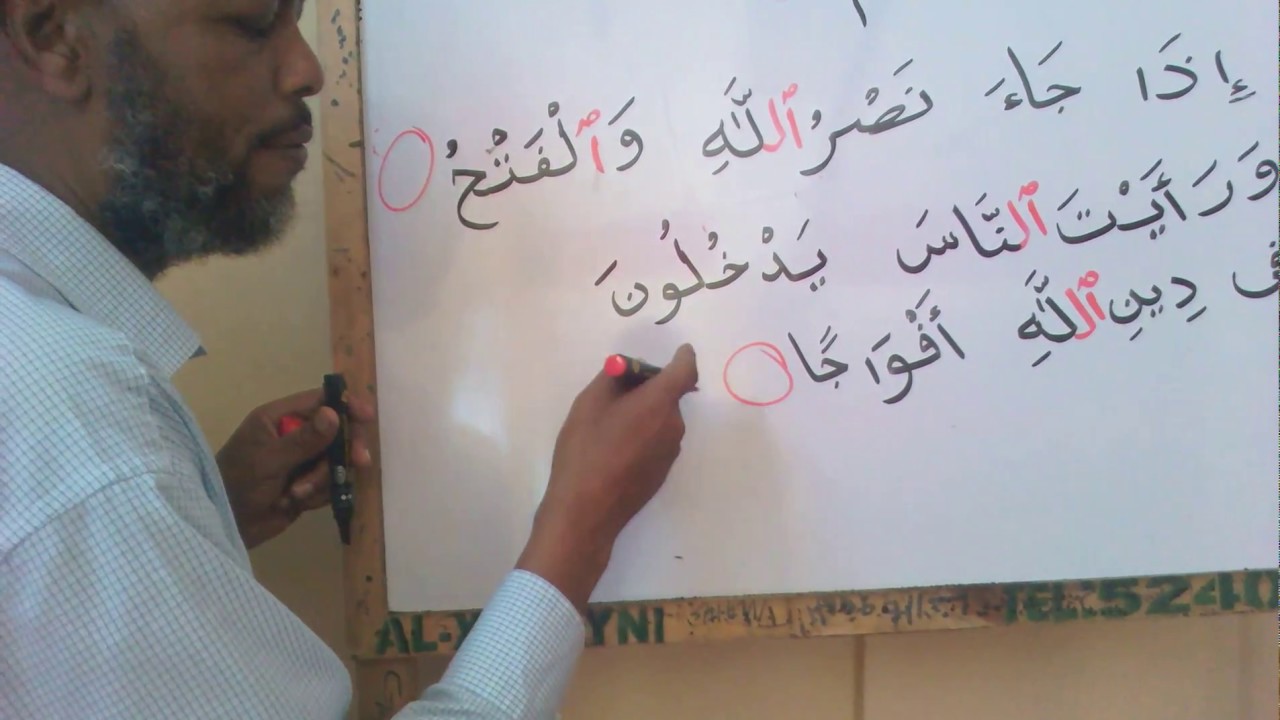 إِذَا جَاءَ نَصْرُ ٱللَّهِ وَٱلْفَتْحُ
وَرَأَيْتَ ٱلنَّاسَ يَدْخُلُونَ
فِى دِينِ ٱللَّهِ أَفْوَاجًا
TEL:5240